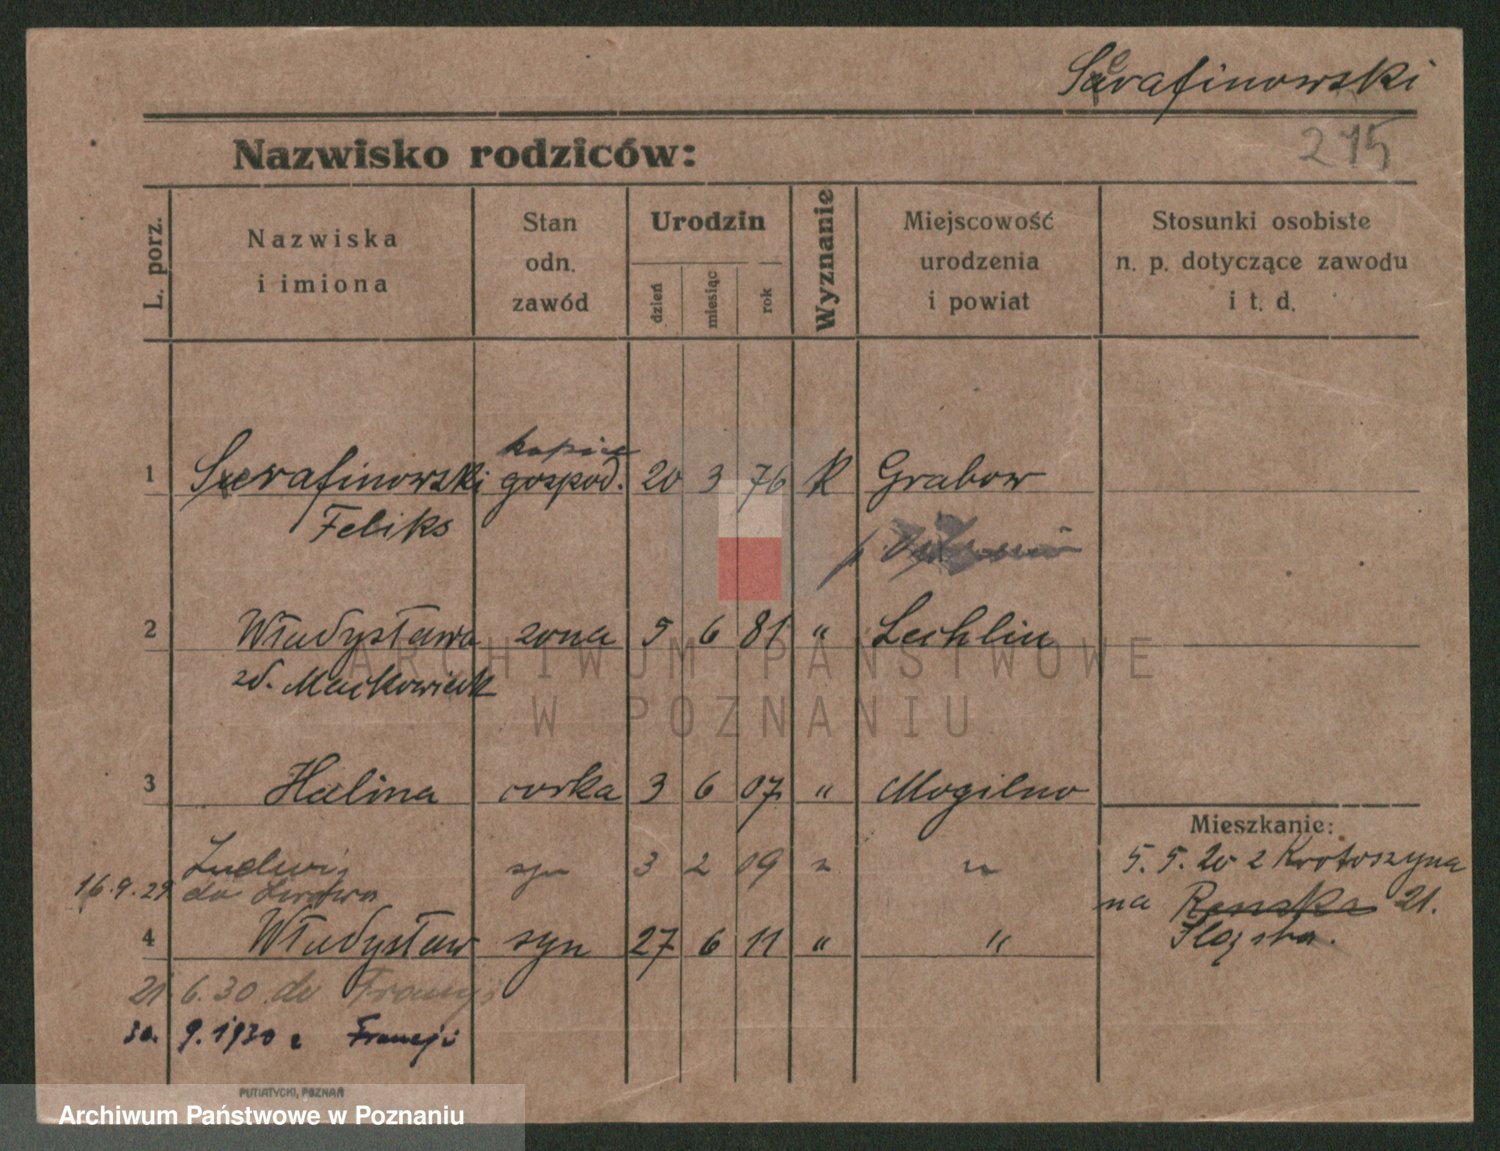 Serafinowski
275
Nazwisko rodziców:
L. porz.
Nazwiska
i imiona
Stan
odn.
zawód
Urodzin
dzień
miesiąc
rok
Wyznanie
Miejscowość
urodzenia
i powiat
Stosunki osobiste
n. p. dotyczące zawodu
i t. d.
kupiec
1 Serafinowski gospod. 20 3 76 K Grabow
Feliks
p
2 Władysława żona 5 6 81 " Lechlin
zd. Maćkowiak
3 Halina córka 3 6 07 " Mogilno
Mieszkanie:
Ludwig syn 3 2 09 " "
5. 5. 20 z Krotoszyna
16.9.29 do Lwowa
na Renska 21.
4 Władysław syn 27 6 11 " "
21.6.30 do Francji
30.9.1930 z Francji
PUTIATYCKI, POZNAŃ
ARCHIWUM PAŃSTWOWE
W POZNANIU
Archiwum Państwowe w Poznaniu